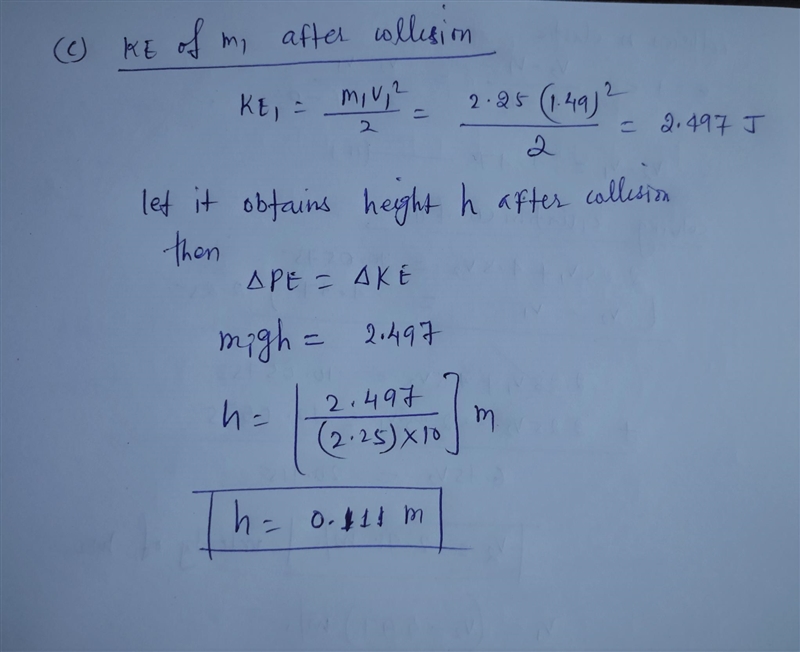 (c) KE of m₁ after collision
KE₁ = m₁v₁²/2 = 2.25 (1.49)²/2 = 2.497 J
let it obtains height h after collision
then
ΔPE = ΔKE
m₁gh = 2.497
h = [2.497/(2.25)×10] m
h = 0.111 m